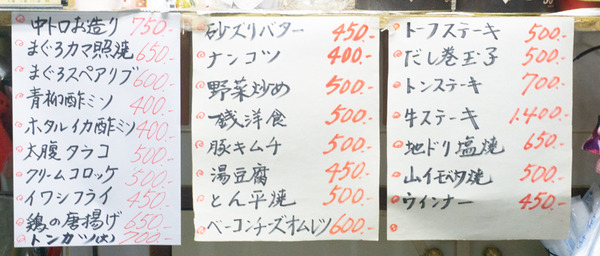 中トロお造り 750.-
まぐろカマ照焼 650.-
まぐろスペアリブ 600.-
青柳酢ミソ 400.-
ホタルイカ酢ミソ 400.-
太腹タラコ 500.-
クリームコロッケ 500.-
イワシフライ 450.-
鶏の唐揚げ 650.-
トンカツ(大) 700.-
砂ズリバター 450.-
ナンコツ 400.-
野菜炒め 500.-
一銭洋食 500.-
豚キムチ 500.-
湯豆腐 450.-
とん平焼 500.-
ベーコンチーズオムレツ 600.-
トーフステーキ 500.-
だし巻玉子 500.-
トンステーキ 700.-
牛ステーキ 1.400.-
地ドリ塩焼 650.-
山イモバタ焼 500.-
ウインナー 450.-